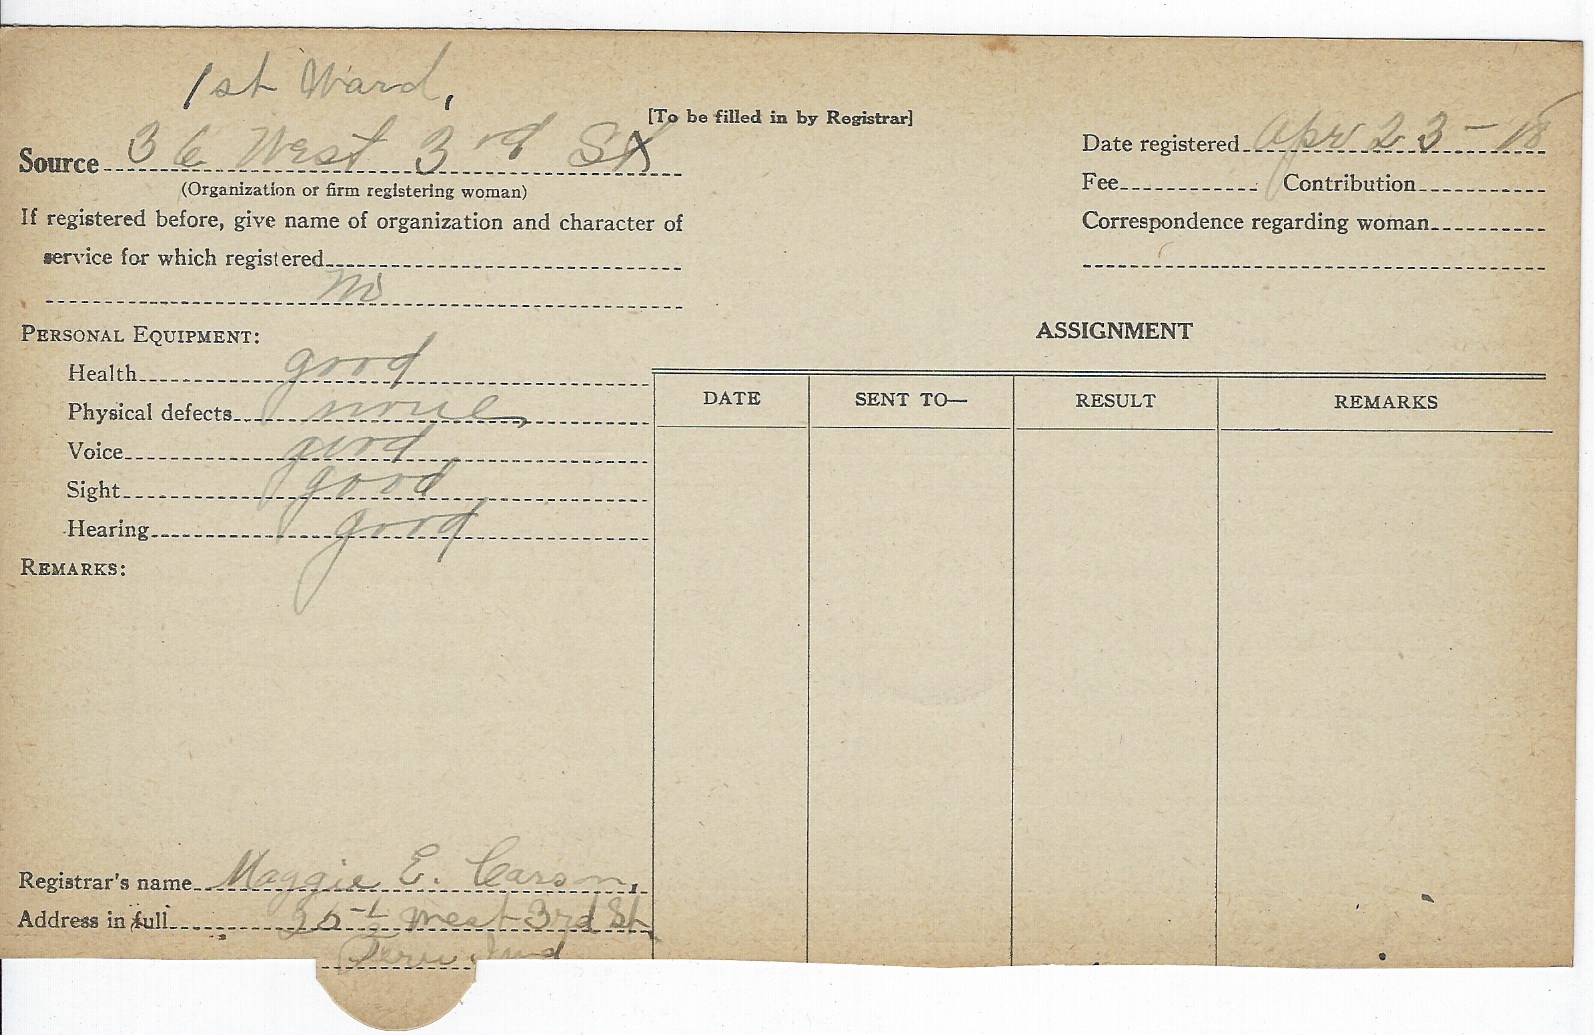 1st Ward,
[To be filled in by Registrar]
Source 36 West 3rd St
(Organization or firm registering woman)
If registered before, give name of organization and character of
service for which registered
No
PERSONAL EQUIPMENT:
Health good
Physical defects none
Voice good
Sight good
Hearing good
REMARKS:
Registrar's name Maggie E. Carson,
Address in full West 3rd St.
Peru Ind
Date registered Apr 23-18
Fee Contribution
Correspondence regarding woman
ASSIGNMENT
DATE SENT TO— RESULT REMARKS